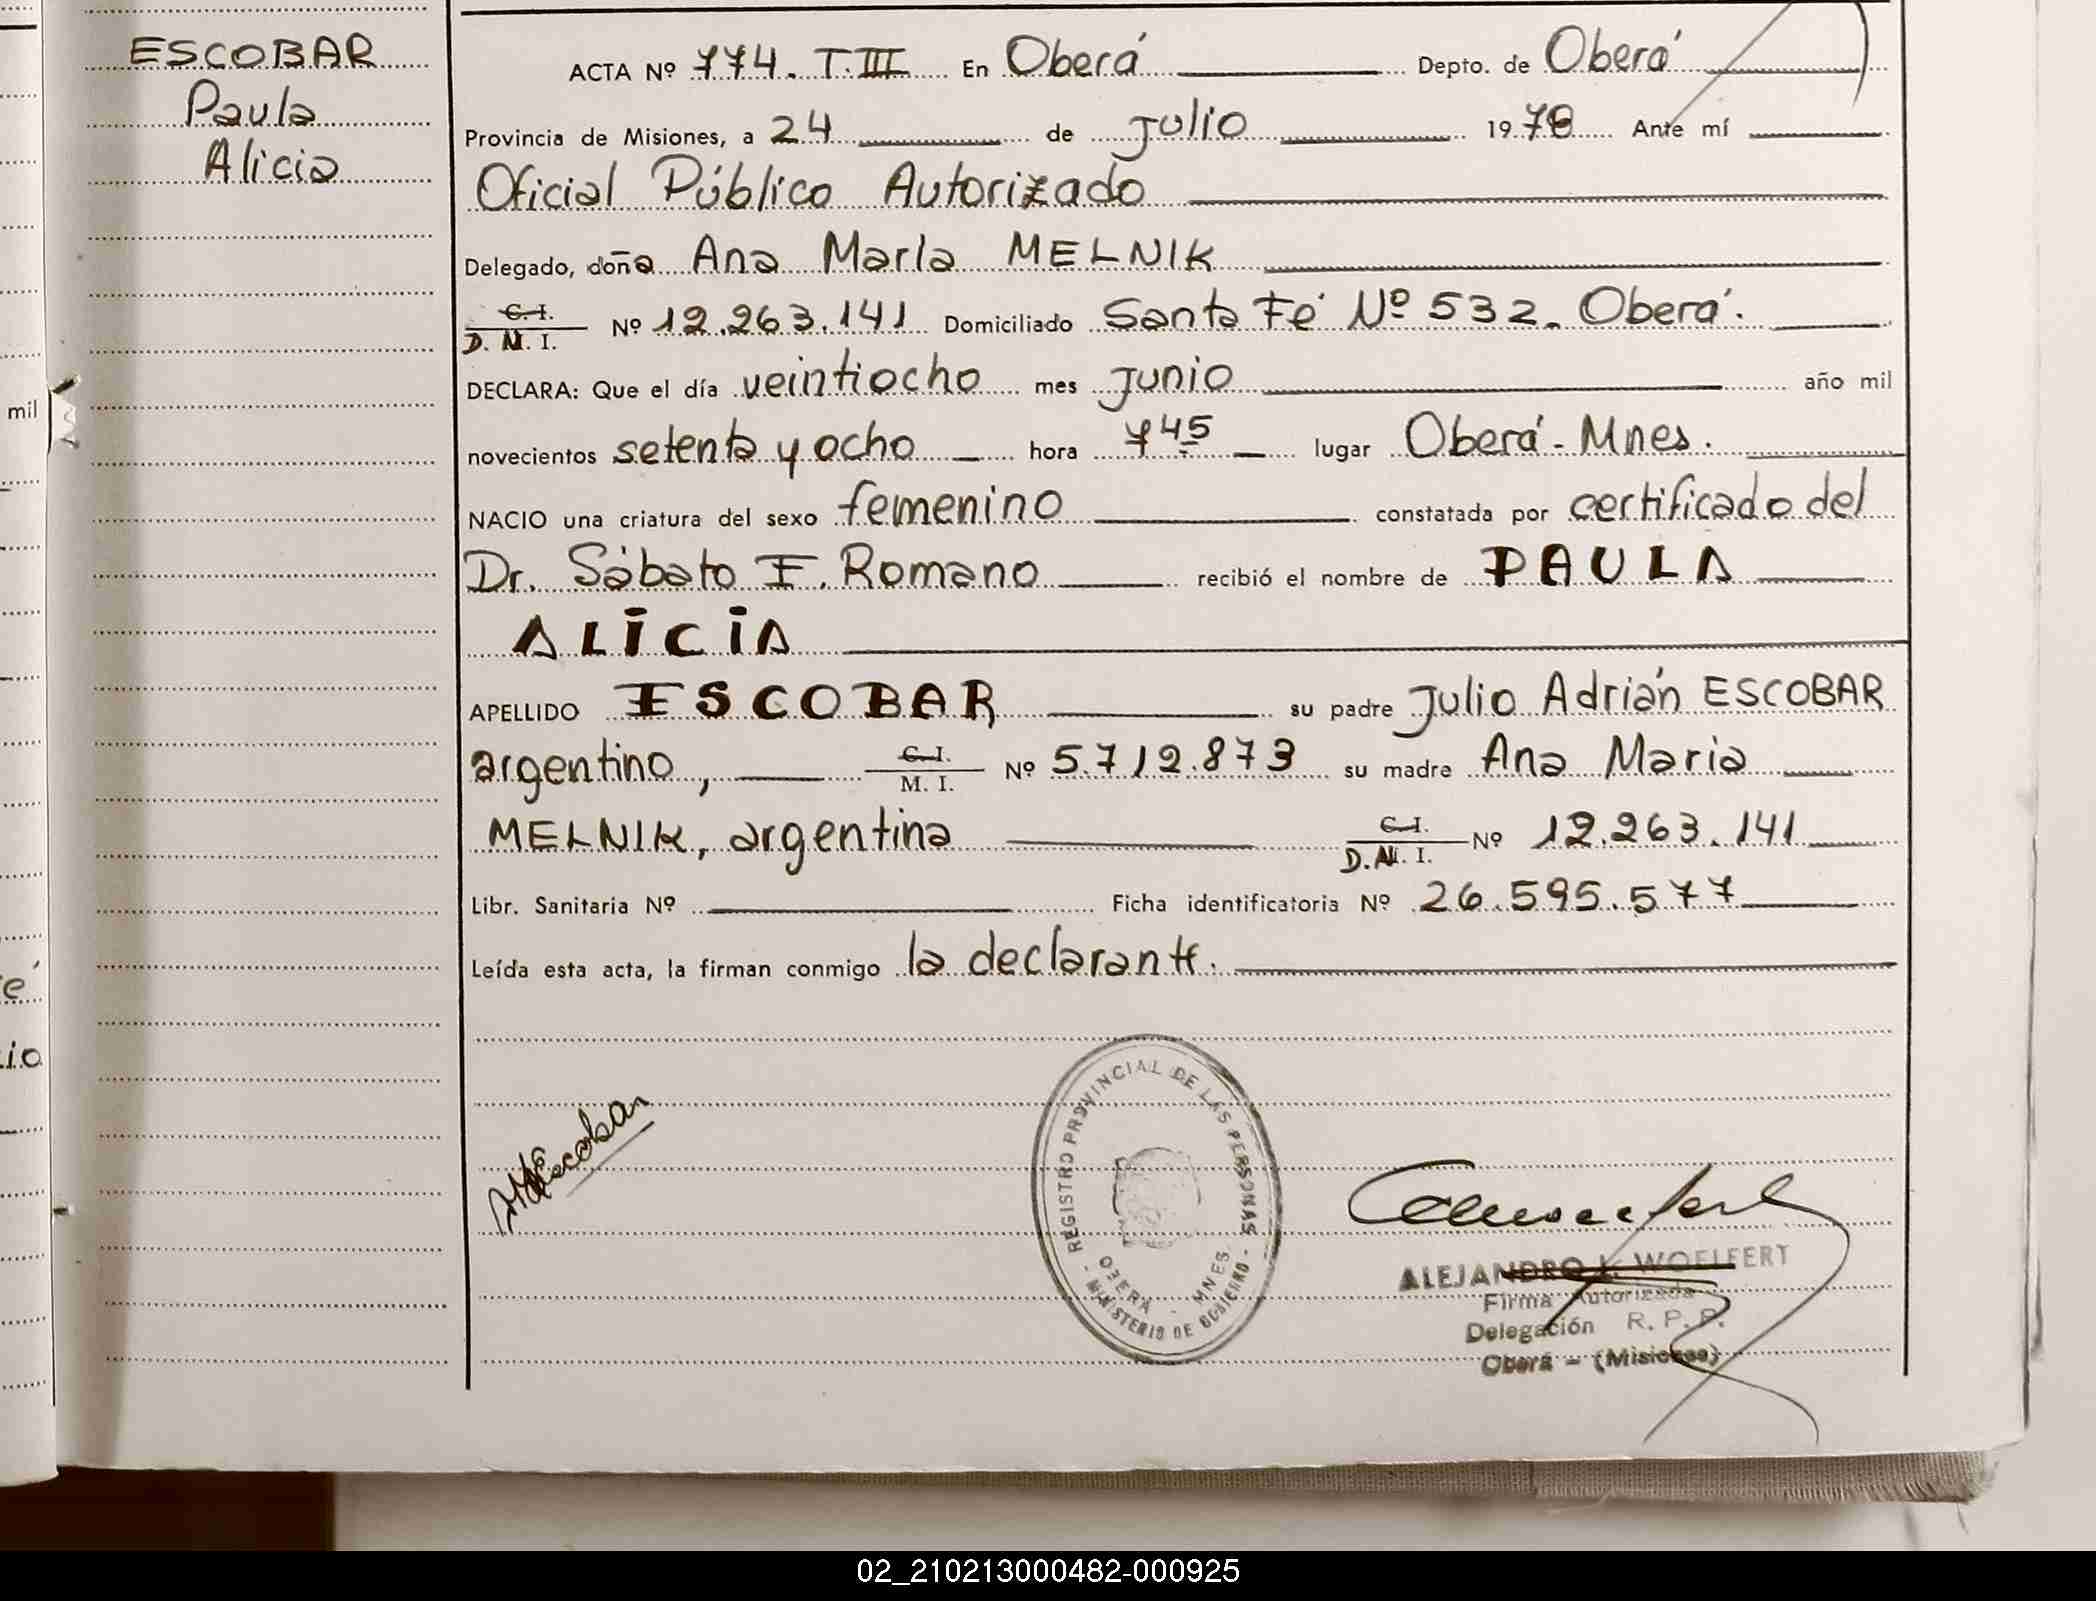 mil
é
io
ESCOBAR
Paula
Alicia
ACTA Nº 774. T. III En Oberá Depto. de Oberá
Provincia de Misiones, a 24 de julio 1978 Ante mí
Oficial Público Autorizado
Delegado, doña Ana María MELNIK
C. I. D. N. I. Nº 12.263.141 Domiciliado Santa Fé Nº 532. Oberá.
DECLARA: Que el día veintiocho mes junio año mil
novecientos setenta y ocho hora 7 45 lugar Oberá - Mnes.
NACIO una criatura del sexo femenino constatada por certificado del
Dr. Sábato F. Romano recibió el nombre de PAULA
ALICIA
APELLIDO ESCOBAR su padre Julio Adrián ESCOBAR
argentino, C. I. M. I. Nº 5.712.873 su madre Ana Maria
MELNIK, argentina C. I. D. N. I. Nº 12.263.141
Libr. Sanitaria Nº Ficha identificatoria Nº 26.595.577
Leída esta acta, la firman conmigo la declarante.
REGISTRO PROVINCIAL DE LAS PERSONAS
OBERA - MNES
- MINISTERIO DE GOBIERNO -
ALEJANDRO L. WOELFERT
Firma Autorizada
Delegación R. P. P.
Oberá - (Misiones)
02_210213000482-000925